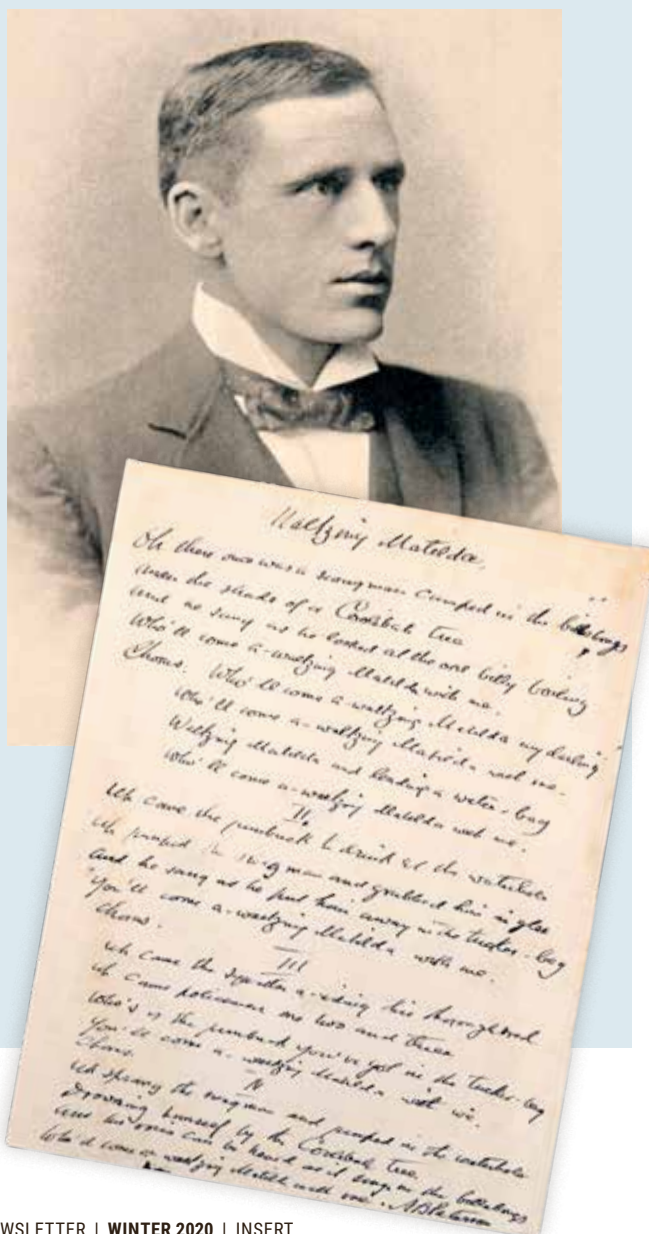 Waltzing Matilda
Oh there once was a swagman camped in the billabongs
Under the shade of a Coolibah tree
And he sang as he looked at the old billy boiling
Who'll come a-waltzing Matilda with me.
Chorus. Who'll come a-waltzing Matilda my darling
Who'll come a-waltzing Matilda with me.
Waltzing Matilda and leading a water-bag
Who'll come a-waltzing Matilda with me.
II
Up came the jumbuck to drink at the waterhole
Up jumped the swagman and grabbed him in glee
And he sang as he put him away in the tucker-bag
You'll come a-waltzing Matilda with me.
Chorus.
III
Up came the squatter a-riding his thoroughbred
Up came policemen one two and three
Who's is the jumbuck you've got in the tucker-bag
You'll come a-waltzing Matilda with we.
Chorus
IV
Up sprang the swagman and jumped in the waterhole
Drowning himself by the Coolibah tree
And his voice can be heard as it sings in the billabongs
Who'll come a-waltzing Matilda with me. A B Paterson
WSLETTER | WINTER 2020 | INSERT